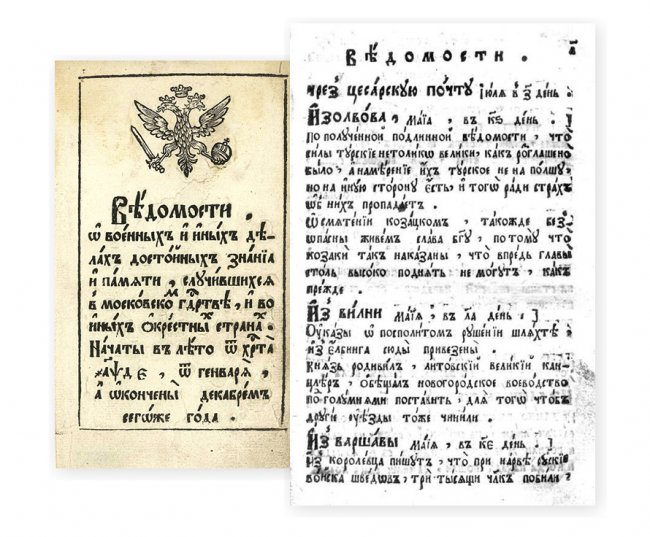 Вѣдомости.
ѿ военныхъ и иныхъ дѣ-
лахъ достойныхъ знанїѧ
и памѧти, случившихсѧ
в московско гдртвѣ, и во
иныхъ окрестны странах.
Начаты в лѣто ѿ хрта
҂аѱд ѿ генварѧ,
а ѡкончены декабремъ
сегоже года.
Вѣдомости.
чрез цесарскую почту Іюлѧ в день.
Изо лвова, маіѧ, въ ке день.
По полученной подлинной вѣдомости, что
силы турскіе нетоликѡ велики, какъ розглашено
было, а намѣреніе ихъ турское не на полшу,
но на иную сторону есть, и тогѡ ради страх
ѡб них пропадаетъ.
Ѡ смѧтеніи козацкомъ, такожде без
ѡпасны живемъ слава бгу, потому что
козаки так наказаны, что впредь главы
столь высоко поднѧть не могутъ, какъ
прежде.
Из вилни маіѧ, въ ла день.
Оуказы ѿ посполитом рушеніи шлѧхтѣ
из елбинга сюды привезены.
Кнѧзь родивилъ, литовскіи великіи кан-
цлеръ, ѡбѣщалъ новогородское воеводство
поставить, длѧ того чтобъ
другіе оуѣзды тоже чинили.
Из варшавы маіѧ, въ ке день.
Из королевца пишутъ, что при нарвѣ рускіе
воиска шведѡвъ, три тысѧщи члкъ побили,